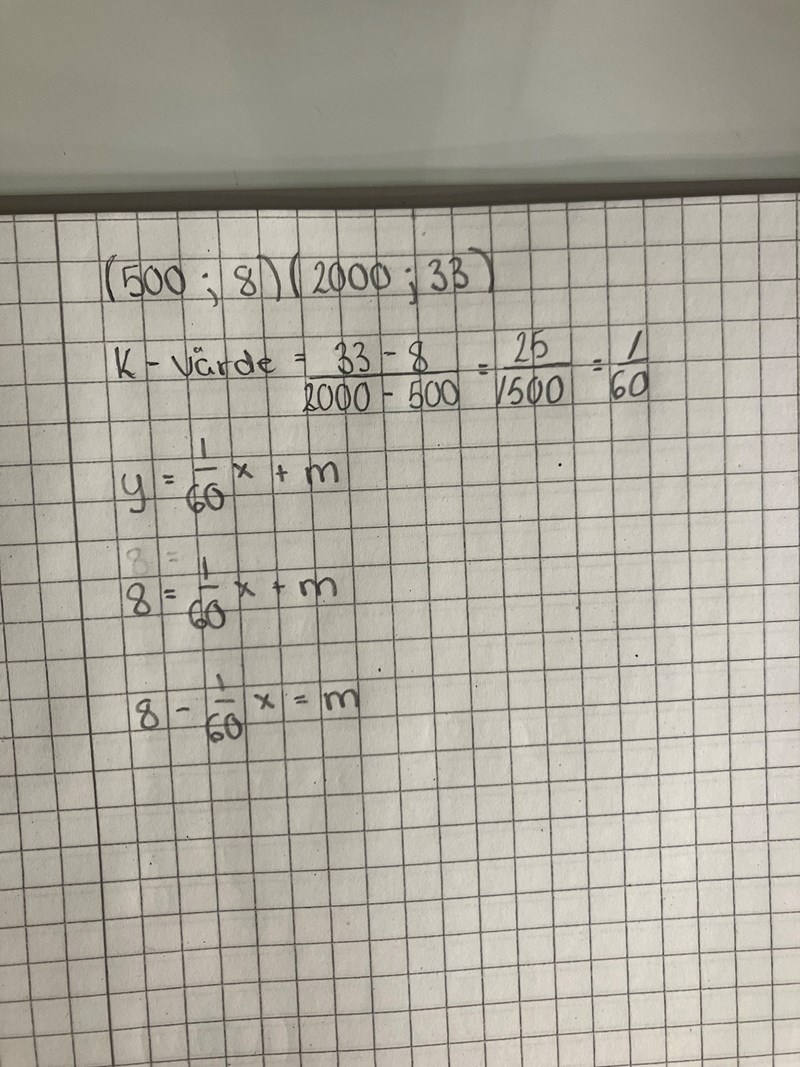 (500 ; 8) (2000 ; 33)
K - värde = 33 - 8 / 2000 - 500 = 25 / 1500 = 1 / 60
y = 1/60 x + m
8 =
8 = 1/60 x + m
8 - 1/60 x = m